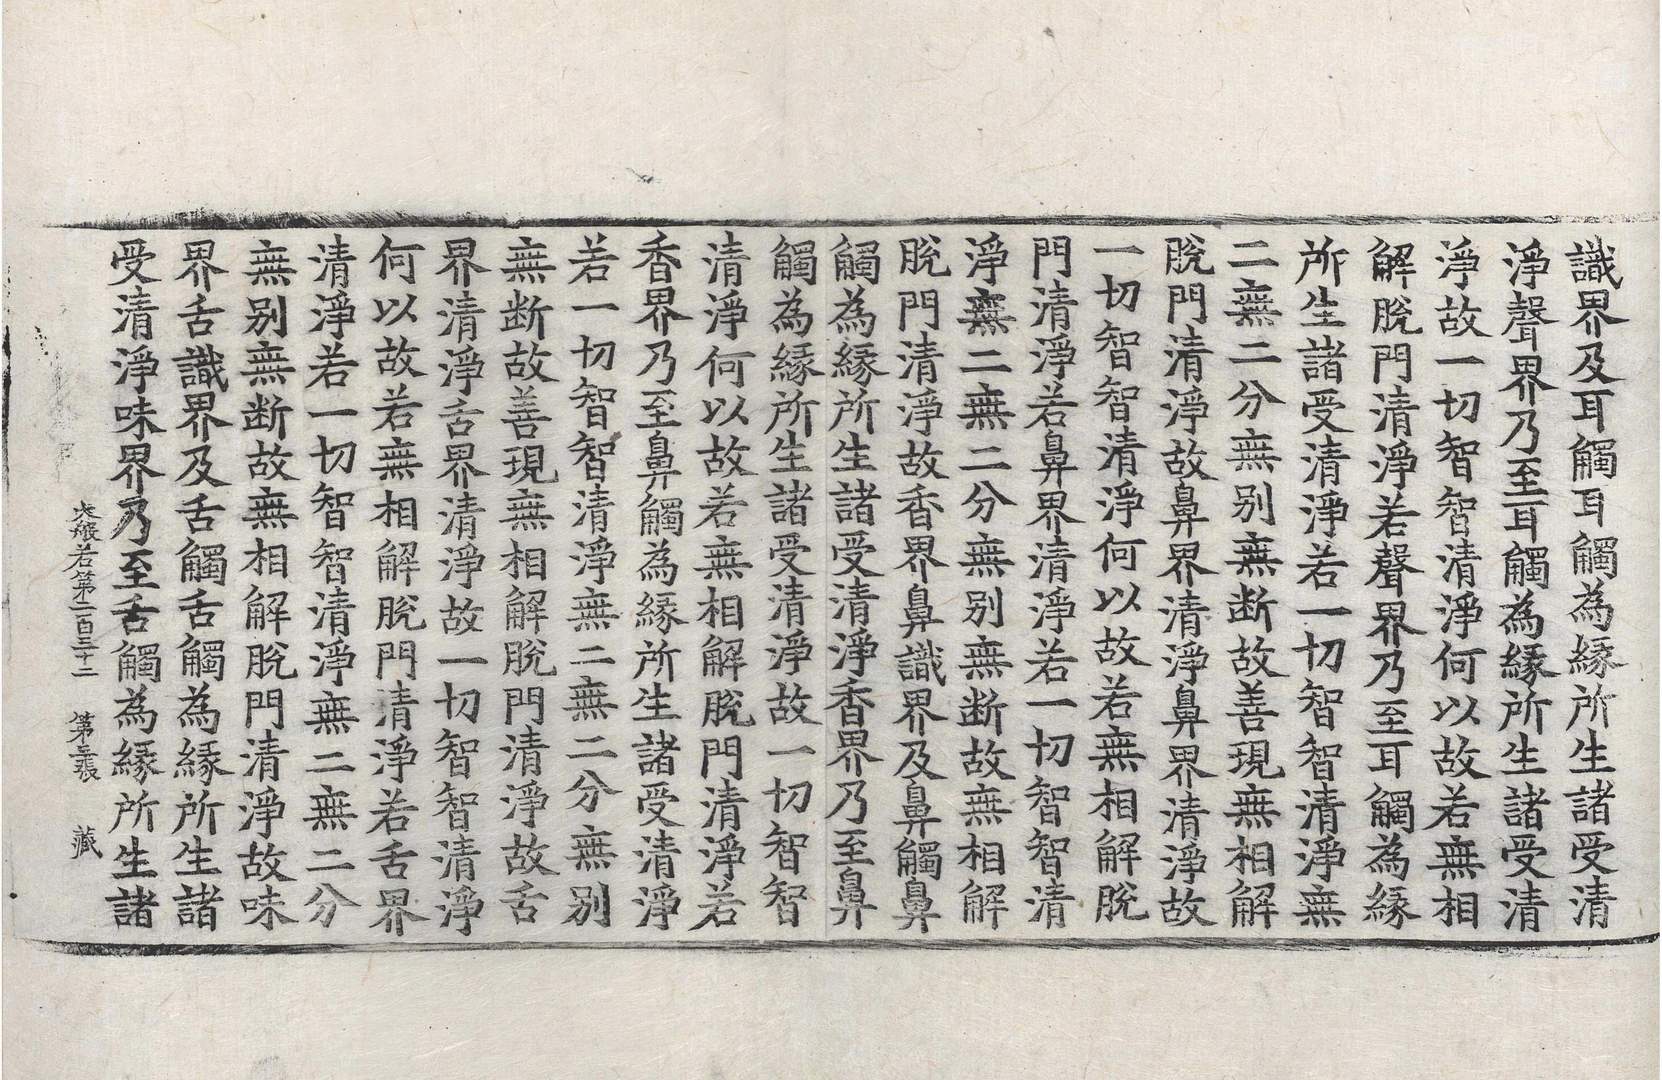 識界及耳觸耳觸為緣所生諸受清
淨聲界乃至耳觸為緣所生諸受清
淨故一切智智清淨何以故若無相
解脫門清淨若聲界乃至耳觸為緣
所生諸受清淨若一切智智清淨無
二無二分無別無斷故善現無相解
脫門清淨故鼻界清淨鼻界清淨故
一切智智清淨何以故若無相解脫
門清淨若鼻界清淨若一切智智清
淨無二無二分無別無断故無相解
脫門清淨故香界鼻識界及鼻觸鼻
觸為緣所生諸受清淨香界乃至鼻
觸為緣所生諸受清淨故一切智智
清淨何以故若無相解脫門清淨若
香界乃至鼻觸為緣所生諸受清淨
若一切智智清淨無二無二分無別
無断故善現無相解脫門清淨故舌
界清淨舌界清淨故一切智智清淨
何以故若無相解脫門清淨若舌界
清淨若一切智智清淨無二無二分
無別無断故無相解脫門清淨故味
界舌識界及舌觸舌觸為緣所生諸
受清淨味界乃至舌觸為緣所生諸
大般若第二百三十二 第三張 藏